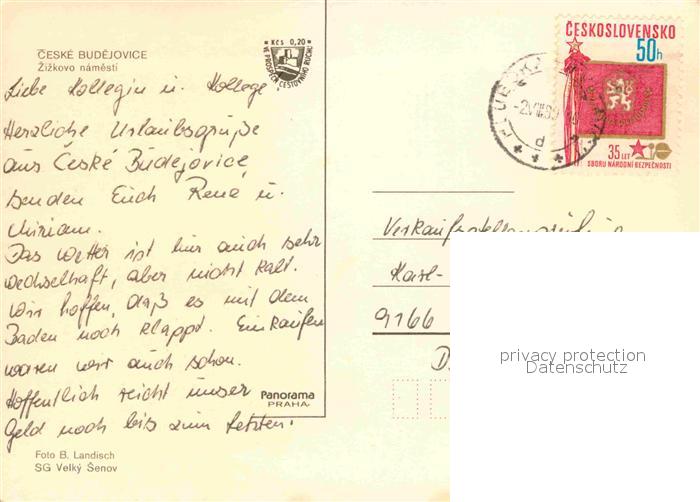 ČESKÉ BUDĚJOVICE
Žižkovo náměstí
Kčs 0,20
VE PROSPĚCH CESTOVNÍHO RUCHU
Liebe Kollegin u. Kollege,
Herzliche Urlaubsgrüße
aus České Budějovice
senden Euch René u.
Miriam.
Das Wetter ist hier auch sehr
wechselhaft, aber nicht kalt.
Wir hoffen, daß es mit dem
Baden noch klappt. Einkaufen
waren wir auch schon.
Hoffentlich reicht unser
Geld noch bis zum Letzten.
Foto B. Landisch
SG Velký Šenov
Panorama
PRAHA
ČESKOSLOVENSKO
50h
35 LET
SBORU NÁRODNÍ BEZPEČNOSTI
Karl-
9166
D
privacy protection
Datenschutz